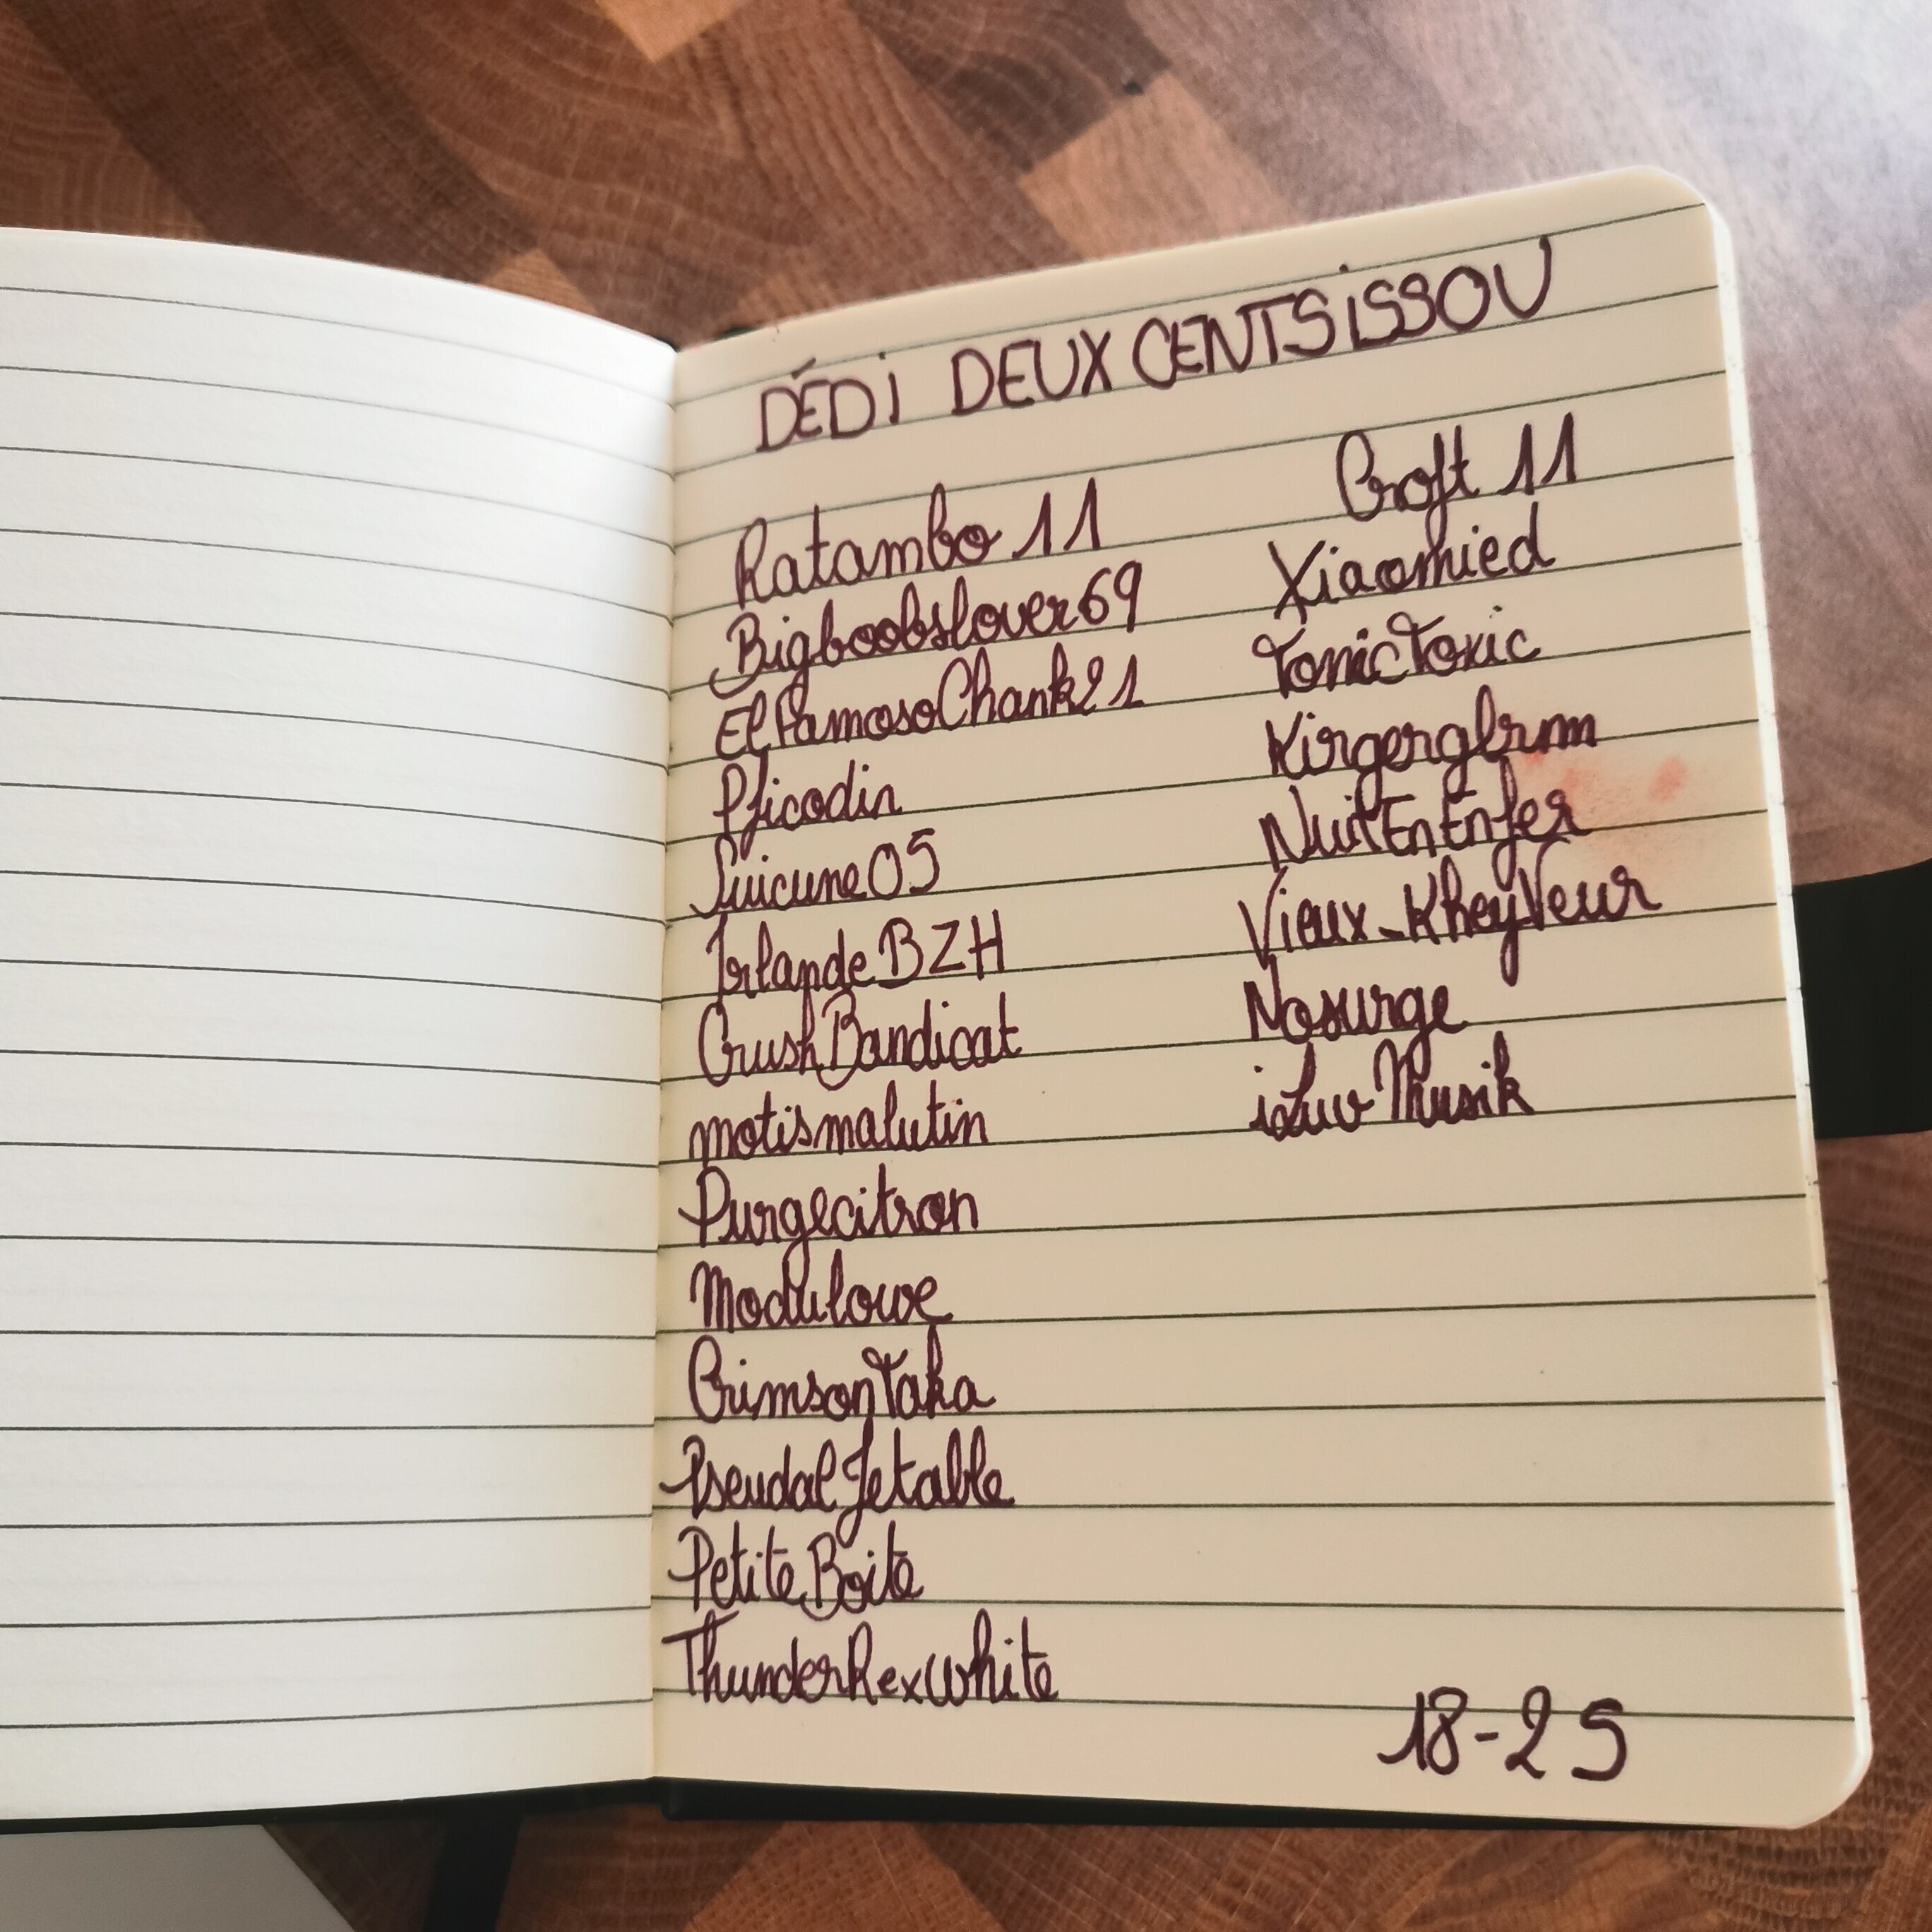 DÉDi DEUXCENTSiSSOU
Ratambo11
Bigboobslover69
ElFamosoChank21
Pficodin
Suicune05
IrlandeBZH
CrushBandicat
motismalutin
Purgecitron
Modulowe
CrimsonTaka
PseudalJetable
PetiteBoite
ThunderRexwhite
Croft 11
Xiaomied
TonicToxic
Kirgerglrnm
NuitEnEnfer
Vieux-KheyVeur
Nosurge
iLuvMusik
18-25